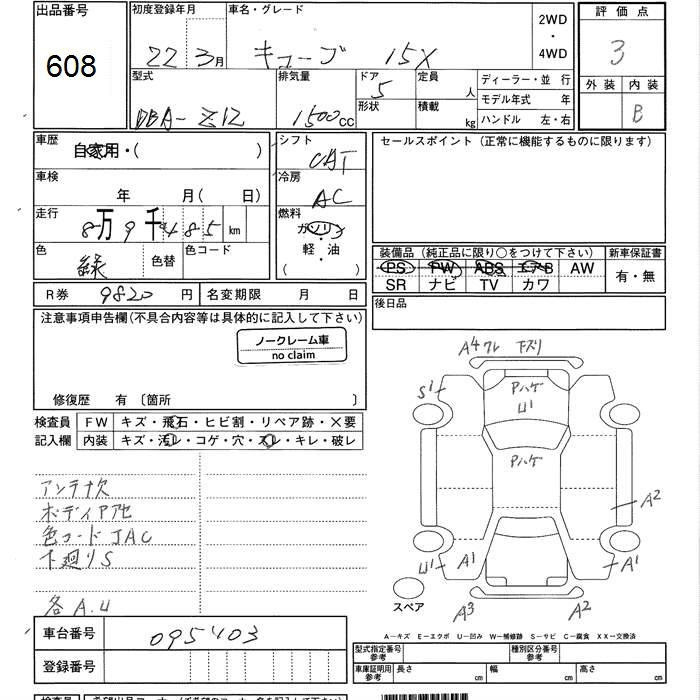 出品番号 初度登録年月 車名・グレード 2WD・4WD 評価点
608 22 3月 キューブ 15X 3
型式 排気量 ドア 5 定員 人 ディーラー・並 行 外装 内装
形状 積載 kg モデル年式 年 B
DBA-Z12 1500cc ハンドル 左・右
車歴 自家用・( ) シフト CAT セールスポイント (正常に機能するものに限ります)
車検 年 月(日) 冷房 AC
走行 8万9千485km 燃料 ガソリン
軽・油
( )
色 緑 色替 色コード
装備品 (純正品に限り○をつけて下さい) 新車保証書
PS PW ABS エアB AW 有・無
SR ナビ TV カワ
R券 9820円 名変期限 月 日 後日品
注意事項申告欄(不具合内容等は具体的に記入して下さい)
ノークレーム車
no claim
修復歴 有 〔箇所 〕
検査員 FW キズ・飛石・ヒビ割・リペア跡・×要
記入欄 内装 キズ・汚レ・コゲ・穴・スレ・キレ・破レ
アンテナ欠
ボディPアセ
色コードJAC
下廻りS
各A.U
A4 ワレ 下ズリ
S1
Pハゲ
U1
Pハゲ
A2
U1 A1 A1
スペア
A3 A2
車台番号 095403
登録番号
A-キズ E-エクボ U-凹み W-補修跡 S-サビ C-腐食 XX-交換済
型式指定番号 参考 種別区分番号 参考
車庫証明用 参考 長さ 幅 高さ
cm cm